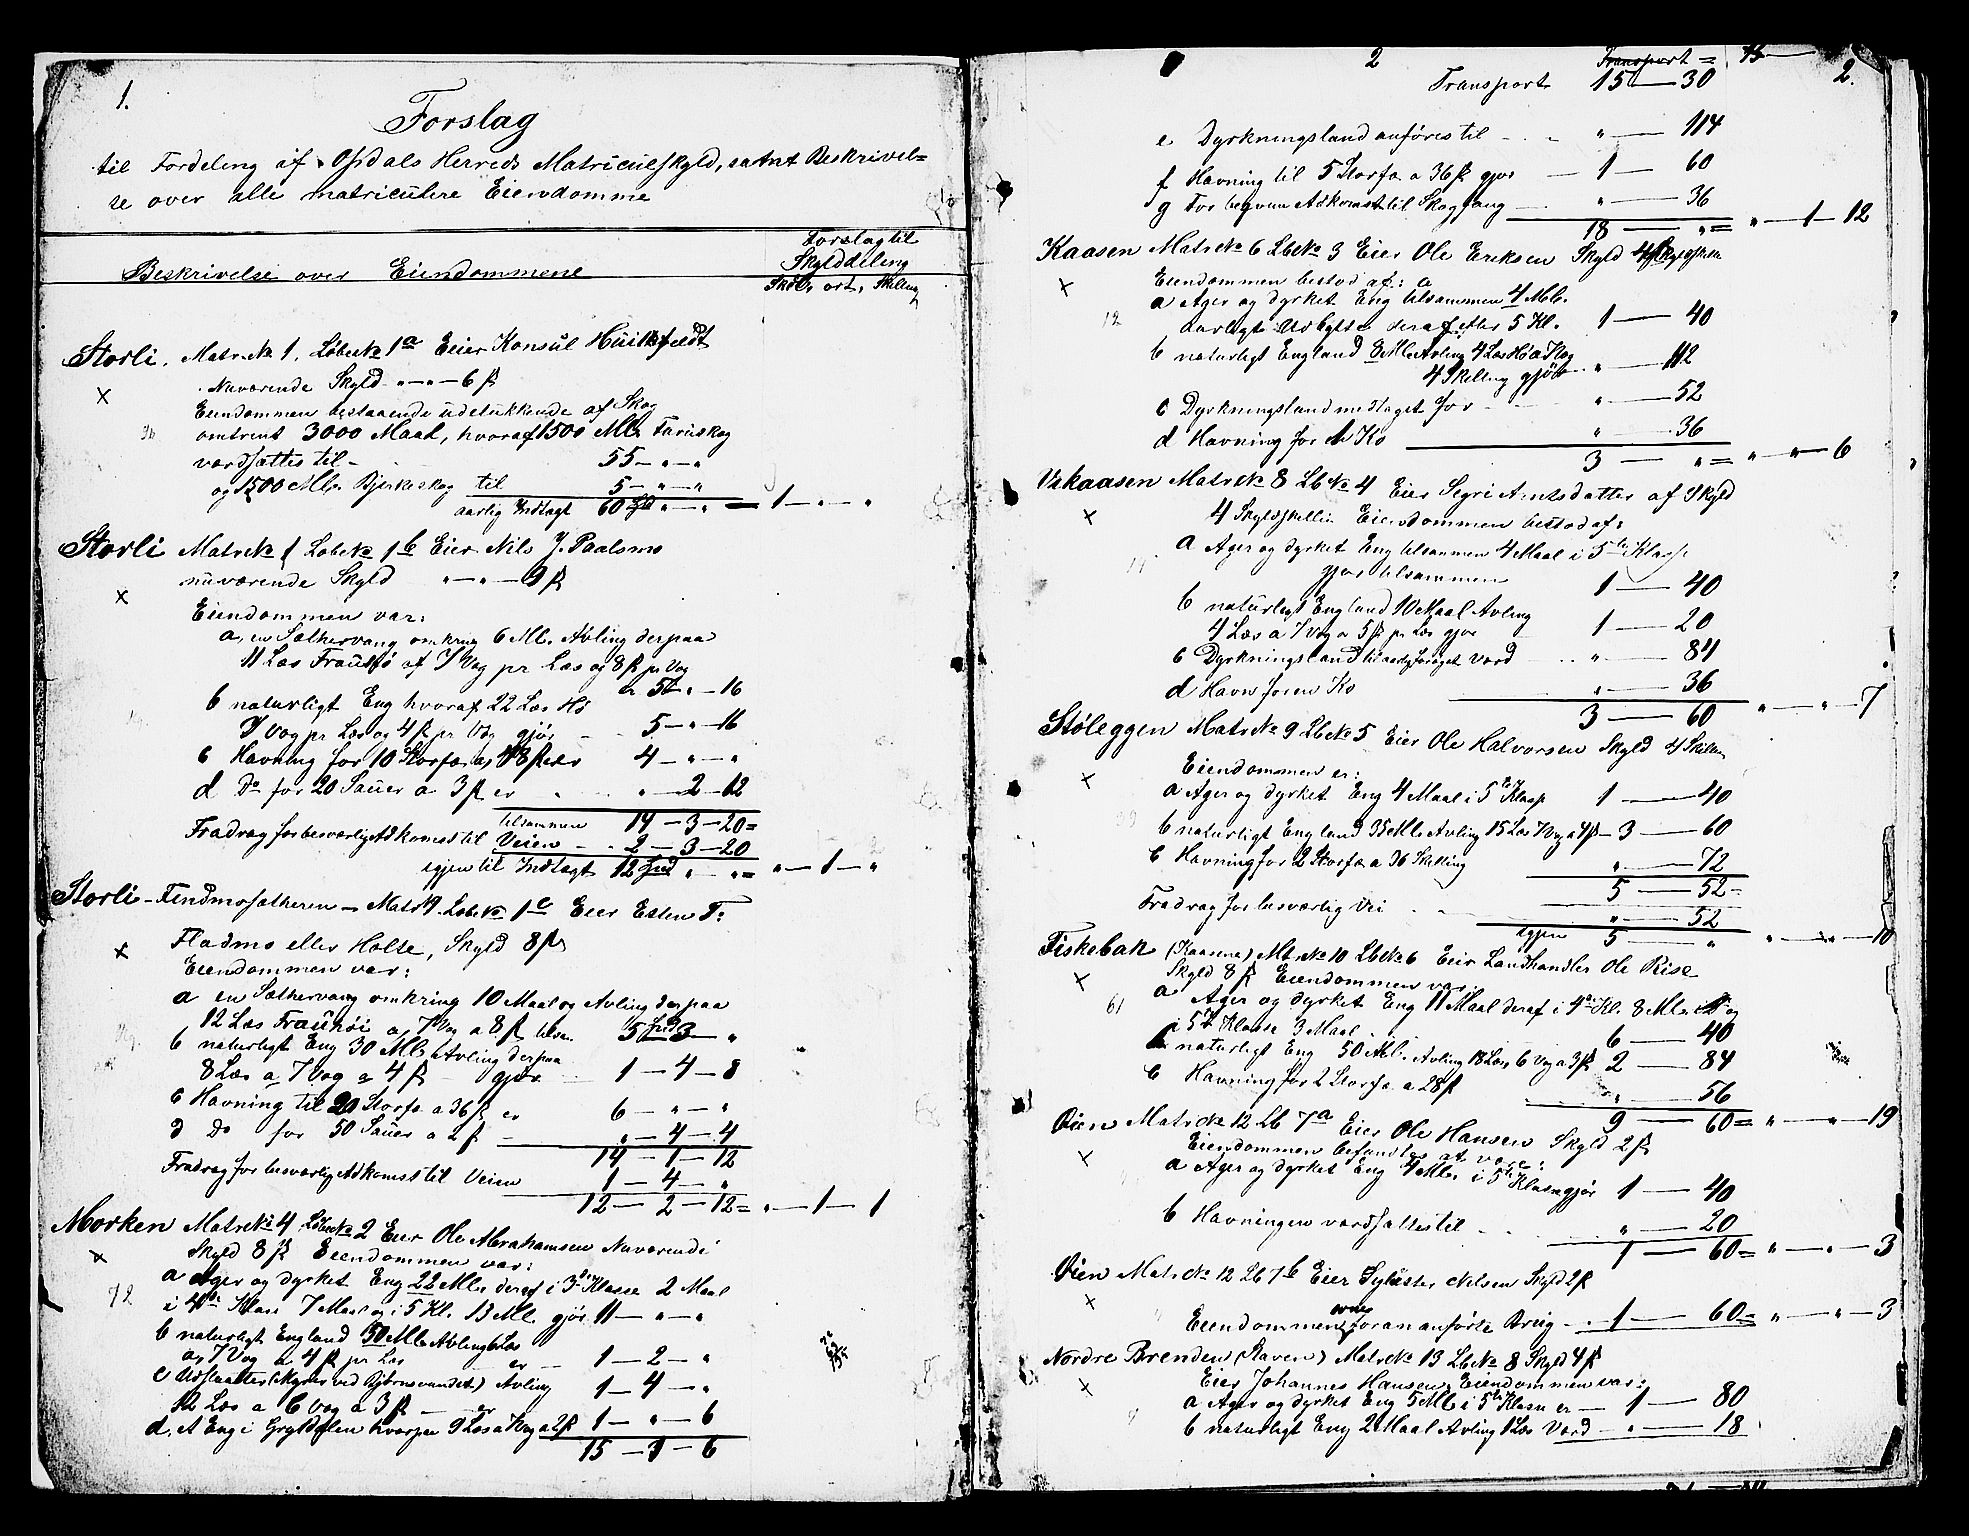 1.
Forslag
til Fordeling af Opdals Herreds Matriculskyld, samt Beskrivel=
se over alle matriculere Eiendomme
Beskrivelse over Eiendommene
Forslag til
Skylddeling
Skdlr, ort, Skilling
Storli. Matr. № 1. Løbe № 1a Eier Konsul Huitfeldt
Nuværende Skyld „ — „ — 6 ß
Eiendommen bestaaende udelukkende af Skog
omtrent 3000 Maal, hvoraf 1500 Mll. Furuskog
værdsættes til — 55 — „ — „
og 1500 Mll. Bjerkeskog til 5 — „ — „
aarlig Indtægt 60 „ — „ — 1 — „ „
Storli Matr № 1 Løbe № 1b Eier Nils J. Paalsmo
nuværende Skyld „ — „ — 9 ß
Eiendommen var:
a, en Sæthervang omkring 6 Mll. Avling derpaa
11 Læs Frauhø af 7 Vog pr Læs og 8 ß pr Vog
er 5 — „ — 16
b naturligt Eng hvoraf 22 Læs Hø
7 Vog pr Læs og 4 ß pr Vog gjør 5 — „ — 16
c Havning for 10 Storfæ a 48 ß er 4 — „ — „
d Do for 20 Sauer a 3 ß er „ — 2 — 12
tilsammen 14 — 3 — 20 =
Fradrag for besværlig Adkomst til Veien 2 — 3 — 20
igjen til Indtægt 12 „ — „ = „ — 1 — „
Storli - Findmosætheren — Matr 1. Løbe № 1c Eier Esten T:
Fladmo eller Holte, Skyld 8 ß
Eiendommen var:
a en Sæthervang omkring 10 Maal og Avling derpaa
12 Læs Frauhøi a 7 Vog a 8 ß 5 — 3 — „
b naturligt Eng 30 Mll Avling derpaa
8 Læs a 7 Vog a 4 ß gjør 1 — 4 — 8
c Havning til 20 Storfæ a 36 ß er 6 — „ — „
d Do for 50 Sauer a 2 ß — „ — 4 — 4
14 — 1 — 12
Fradrag for besværlig Adkomst til Veien 1 — 4 — „
12 — 2 — 12 = „ — 1 — 1
Morken Matr № 4 Løbe № 2 Eier Ole Abrahamsen Nuværende
Skyld 8 ß Eiendommen var:
72
a Ager og dyrket Eng 22 Mll. deraf i 3die Klasse 2 Maal
i 4de Klasse 7 Maal og i 5 Kl. 13 Mll. gjør 11 — „ — „
b naturligt England 50 Mll Avling 6 Læs
a 7 Vog a 4 ß pr Læs er — 1 — 2 — „
c Udslaatter (Myrer ved Bjørnsvandet) Avling
12 Læs a 6 Vog a 3 ß — er 1 — 4 — „
d, et Eng i Grytdalen hvorpaa 9 Læs a 7 Vog a 2 ß 1 — „ — 6
15 — 1 — 6
2
Transport = 15 —
2.
Transport 15 — 30
e Dyrkningsland anføres til „ — 114
f Havning til 5 Storfæ a 36 ß gjør — 1 — 60
g For begvem Adkomst til Skogfang — „ — 36
18 — „ = „ — 1 — 12
Kaasen Matr № 6 Lb № 3 Eier Ole Eriksen Skyld 4
Eiendommen bestod af:
12
a Ager og dyrket Eng tilsammen 4 Mll.
aarligt Udbytte deraf efter 5 Kl. 1 — 40
b naturligt England 8 Mll. Avling 4 Læs
4 Skilling gjør — „ — 112
c Dyrkningsland medtaget for — „ — 52
d Havning for 1 Ko „ — 36
3 — „ = „ — „ — 6
Vækaasen Matr № 8 Lb № 4 Eier Segri Arntsdatter af Skyld
4 Skyldskillin Eiendommen bestod af:
a Ager og dyrket Eng tilsammen 4 Maal i 5te Klasse
gjør tilsammen 1 — 40
b naturligt England 10 Maal Avling
4 Læs a 7 Vog a 5 ß pr Læs gjør 1 — 20
c Dyrkningsland til aarlig forøget Værd „ — 84
d Havn for en Ko „ — 36
3 — 60 „ — „ — 7
Støleggen Matr № 9 Lb № 5 Eier Ole Halvorsen Skyld 4 Skillin
Eiendommen er:
a Ager og dyrket Eng 4 Maal i 5te Klasse 1 — 40
b naturligt England 35 Mll. Avling 15 Læs 7 Vog a 4 ß — 3 — 60
c Havning for 2 Storfæ a 36 Skilling „ — 72
5 — 52 —
Fradrag for besværlig Vei „ — 52
igjen 5 — „ „ — „ — 10
Fiskebæk (Kaasene) Mtr № 10 Lb № 6 Eier Landhandler Ole Rise
Skyld 8 ß Eiendommen var
61
a Ager og dyrket Eng 11 Maal deraf i 4de Kl. 8 Mll. og
i 5te Klasse 3 Maal 6 — 40
b naturligt Eng 50 Mll. Avling 18 Læs 6 Vog a 3 ß 2 — 84
c Havning for 2 Storfæ a 28 ß „ — 56
9 — 60 = „ — „ — 19
Øien Matr № 12 Lb 7a Eier Ole Hansen Skyld 2 ß
Eiendommen befandtes at være:
a Ager og dyrket Eng 4 Mll. i 5te Klasse gjør 1 — 40
b Havningen værdsættes til „ — 20
1 — 60 = „ — „ — 3
Øien Matr № 12 Lb 7b Eier Sylfæster Nilsen Skyld 2 ß
Eiendommen som foran anførte Brug — 1 — 60 = „ — „ — 3
Nordre Brenden (Staven) Matr № 13 Lb № 8 Skyld 4 ß
Eier Johannes Hansen. Eiendommen var:
9
a Ager og dyrket Eng 5 Mll i 5te Klasse er — 1 — 80
b naturligt Eng 2 Maal Avling 1 Læs Værd — „ — 18